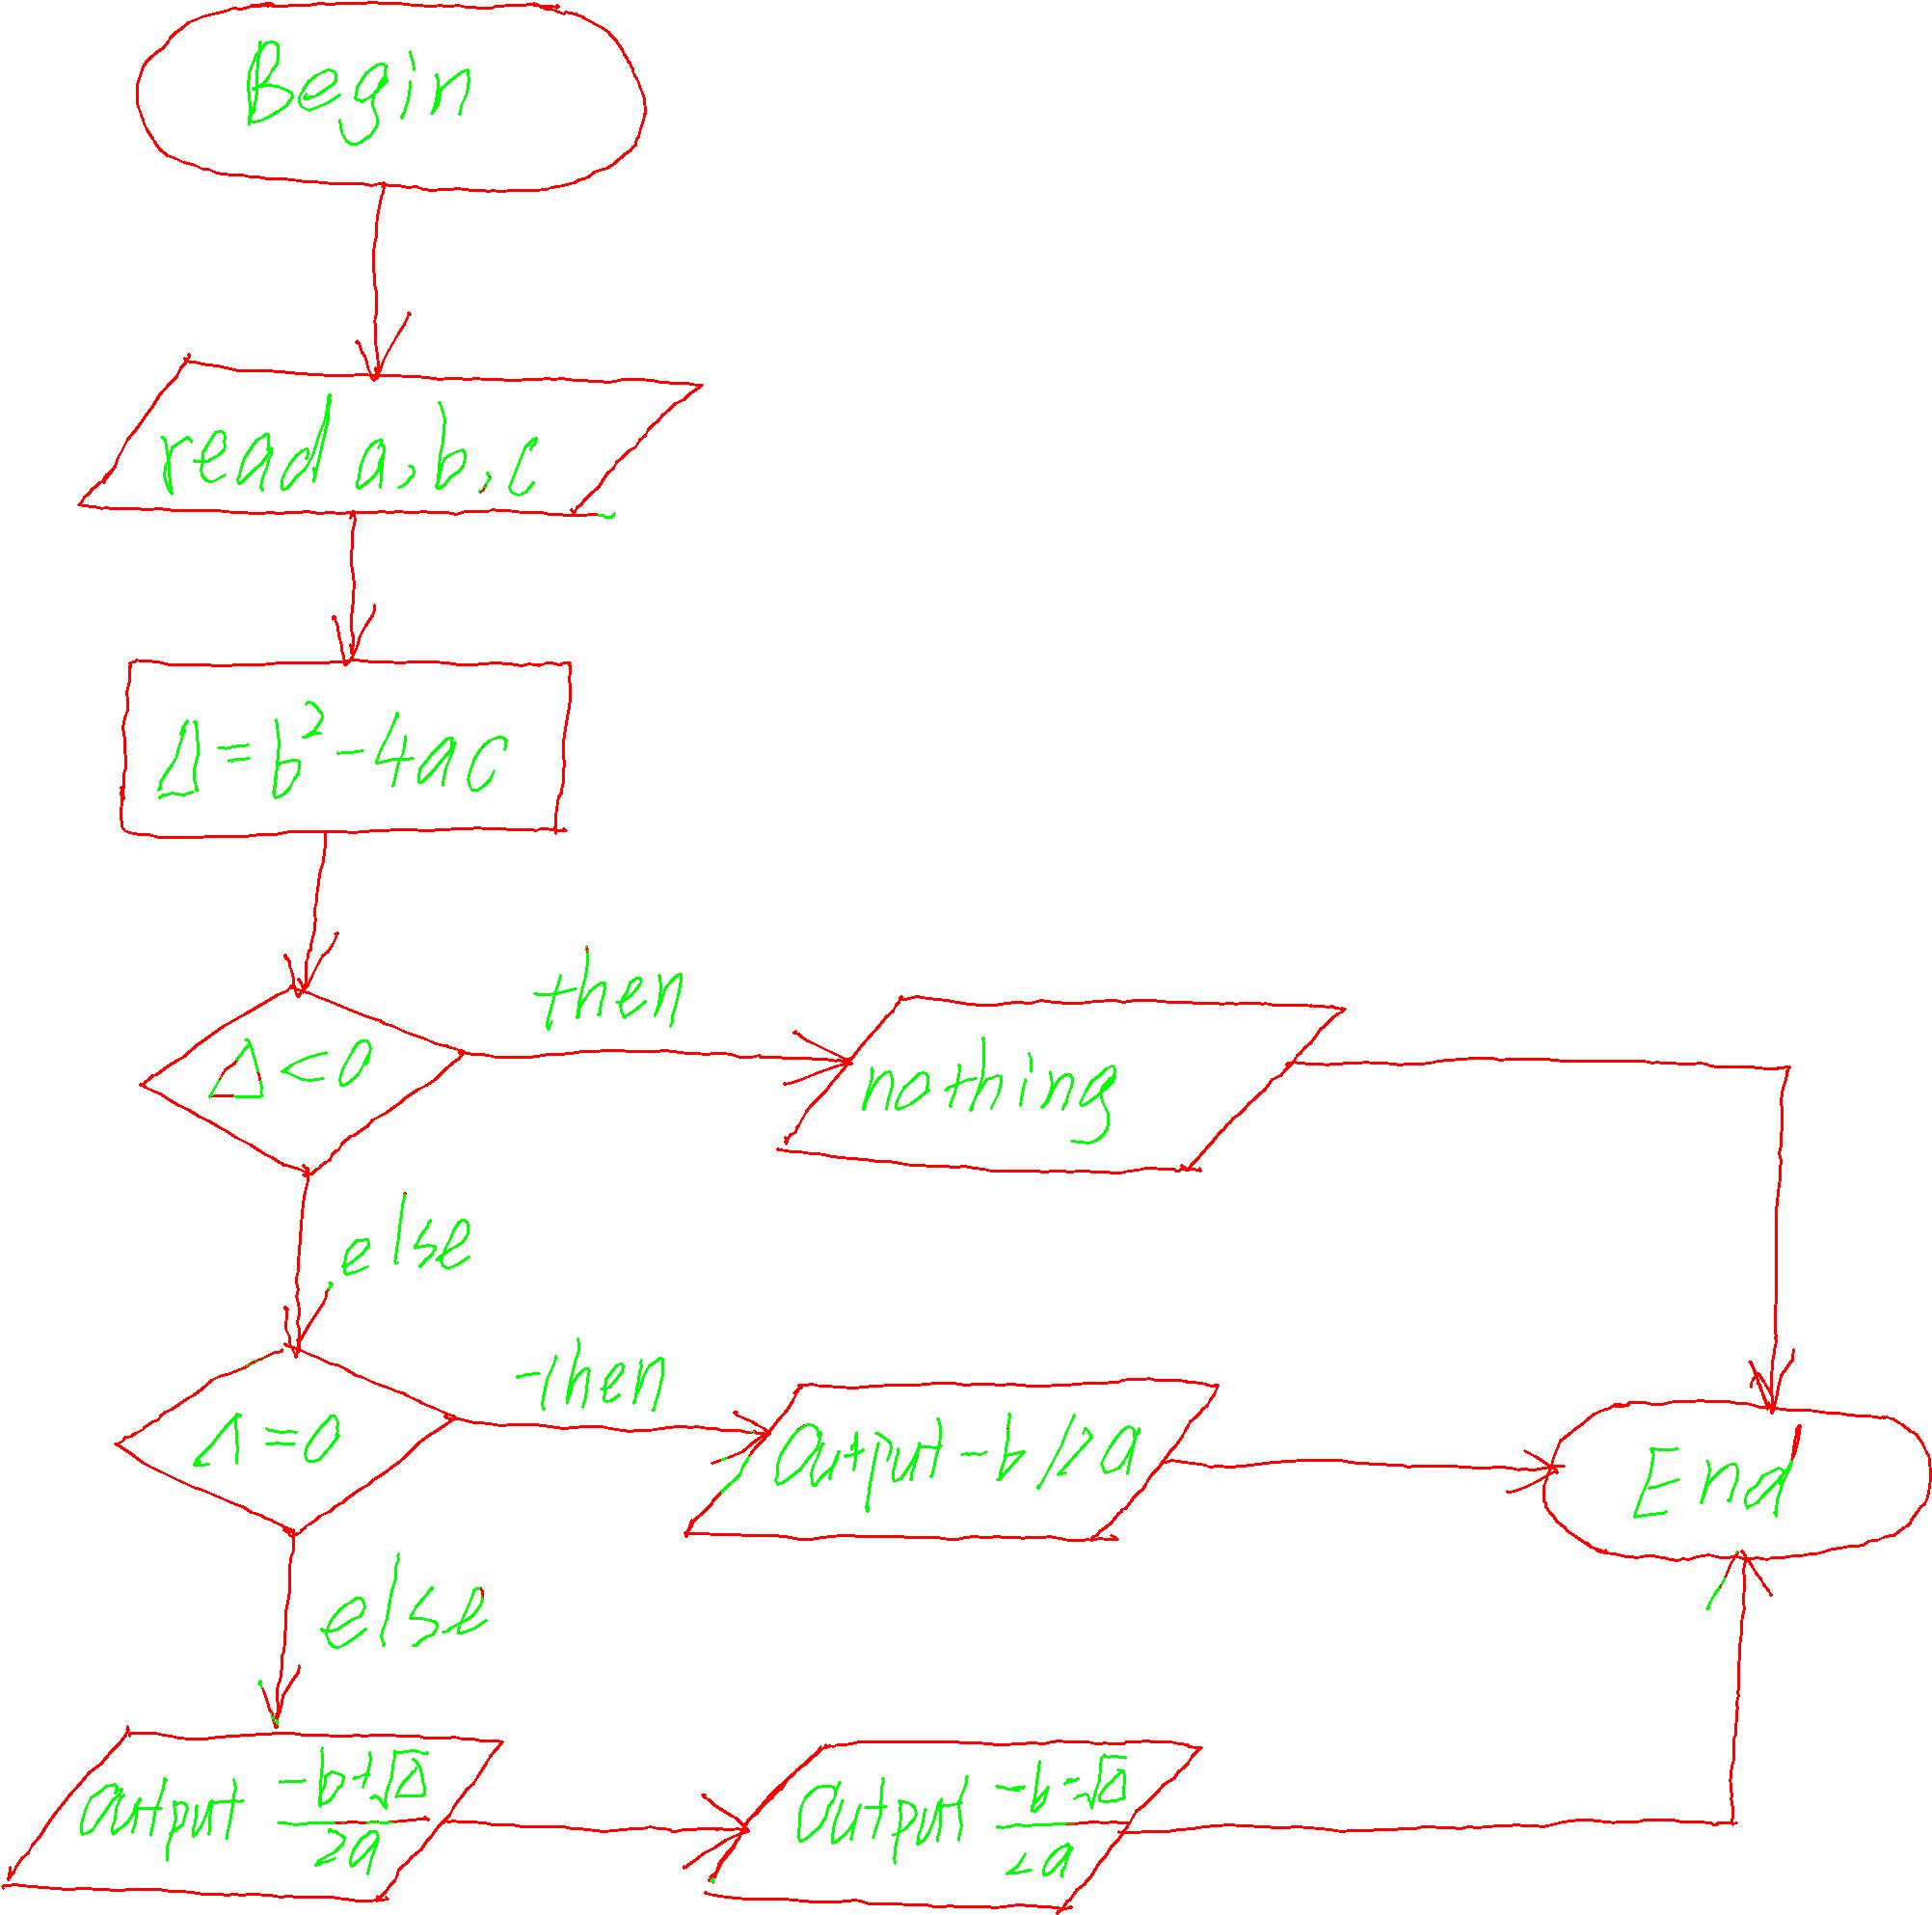 Begin
read a, b, c
Δ = b² - 4ac
Δ < 0
then
nothing
else
Δ = 0
then
output - b / 2a
End
else
output (-b+√Δ)/2a
output (-b-√Δ)/2a